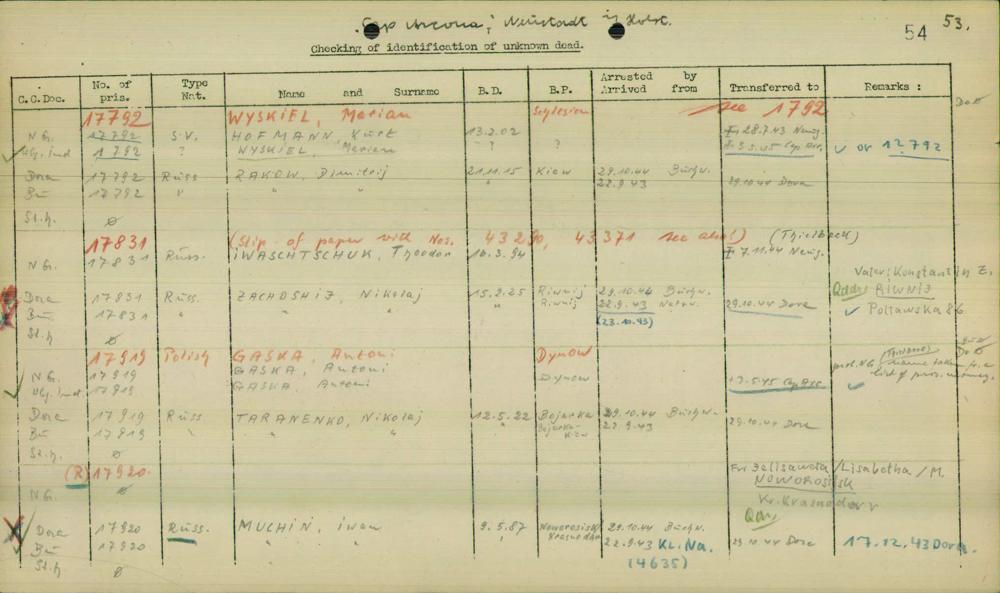 "Cap Arcona", Neustadt i/ Holst.
54 53.
Checking of identification of unknown dead.
C.C.Doc. No. of pris. Type Nat. Name and Surname B.D. B.P. Arrested by Arrived from Transferred to Remarks :
17792 WYSKIEL, Marian see 1792
NG. 17792 S.V. HOFMANN, Kurt 13.2.02 28.7.43 Neug.
1792 ? WYSKIEL, Marian ? ? 3.5.45 Cap Arc. or 12792
Dora 17792 Russ ZAKOW, Dimitrij 21.11.15 Kiew 29.10.44 Buchw.
Bu 17792 " " " " 22.9.43 29.10.44 Dora
St.h. ø
17831 (Slip of paper with Nos. 43290, 43371 see also!) (Thielbeck)
NG. 17831 Russ. IWASCHTSCHUK, Theodor 16.3.94 7.11.44 Neug.
Konstantin Z.
Dora 17831 Russ. ZACHOSHIJ, Nikolaj 15.2.25 Riwnij 29.10.44 Buchw. RIWNIJ
Bu 17831 " " " " Riwnij 22.9.43 29.10.44 Dora Poltawska 86
(23.10.43)
St.h ø
17919 Polish GASKA, Antoni Dynow
NG. 17919 GASKA, Antoni Dynow
17919 GASKA, Antoni +3.5.45 Cap Arc. list of pris. money.
Dora 17919 Russ. TARANENKO, Nikolaj 12.5.22 Bojarka 29.10.44 Buchw.
Bu 17919 " " " " Bojarka-Kiew 22.9.43 29.10.44 Dora
St.h. ø
(R) 17920. Jelisaweta/Lisabetha/M.
NG. ø NOWOROSIJSK
Kr. Krasnodarr
Dora 17920 Russ. MUCHIN, iwan 9.5.87 Noworosisk 29.10.44 Buchw.
Bu 17920 " " " " Krasnodar 22.9.43 KL. Na. 29.10.44 Dora 17.12.43 Dora.
St.h ø (4635)